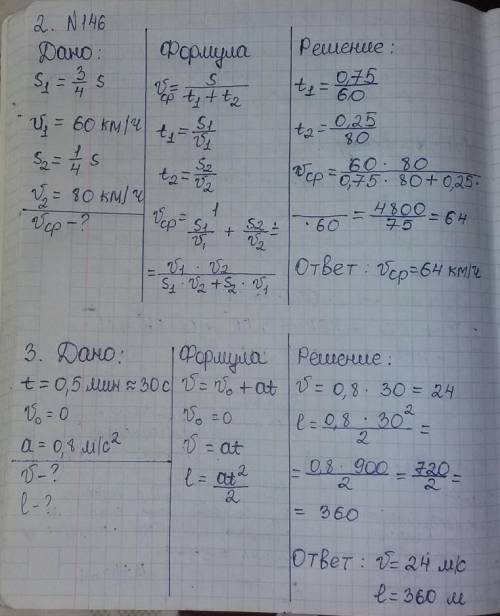 2. N146
Дано:
S₁ = 3/4 S
v₁ = 60 км/ч
S₂ = 1/4 S
v₂ = 80 км/ч
vср - ?
Формула
vср = S/(t₁ + t₂)
t₁ = S₁/v₁
t₂ = S₂/v₂
vср = 1/(S₁/v₁ + S₂/v₂) =
= (v₁ · v₂)/(S₁ · v₂ + S₂ · v₁)
Решение:
t₁ = 0,75/60
t₂ = 0,25/80
vср = (60 · 80)/(0,75 · 80 + 0,25 ·
· 60 = 4800/75 = 64
Ответ: vср = 64 км/ч
3. Дано:
t = 0,5 мин ≈ 30 с
v₀ = 0
a = 0,8 м/с²
v - ?
l - ?
Формула
v = v₀ + at
v₀ = 0
v = at
l = at²/2
Решение:
v = 0,8 · 30 = 24
l = (0,8 · 30²)/2 =
= (0,8 · 900)/2 = 720/2 =
= 360
Ответ: v = 24 м/с
l = 360 м